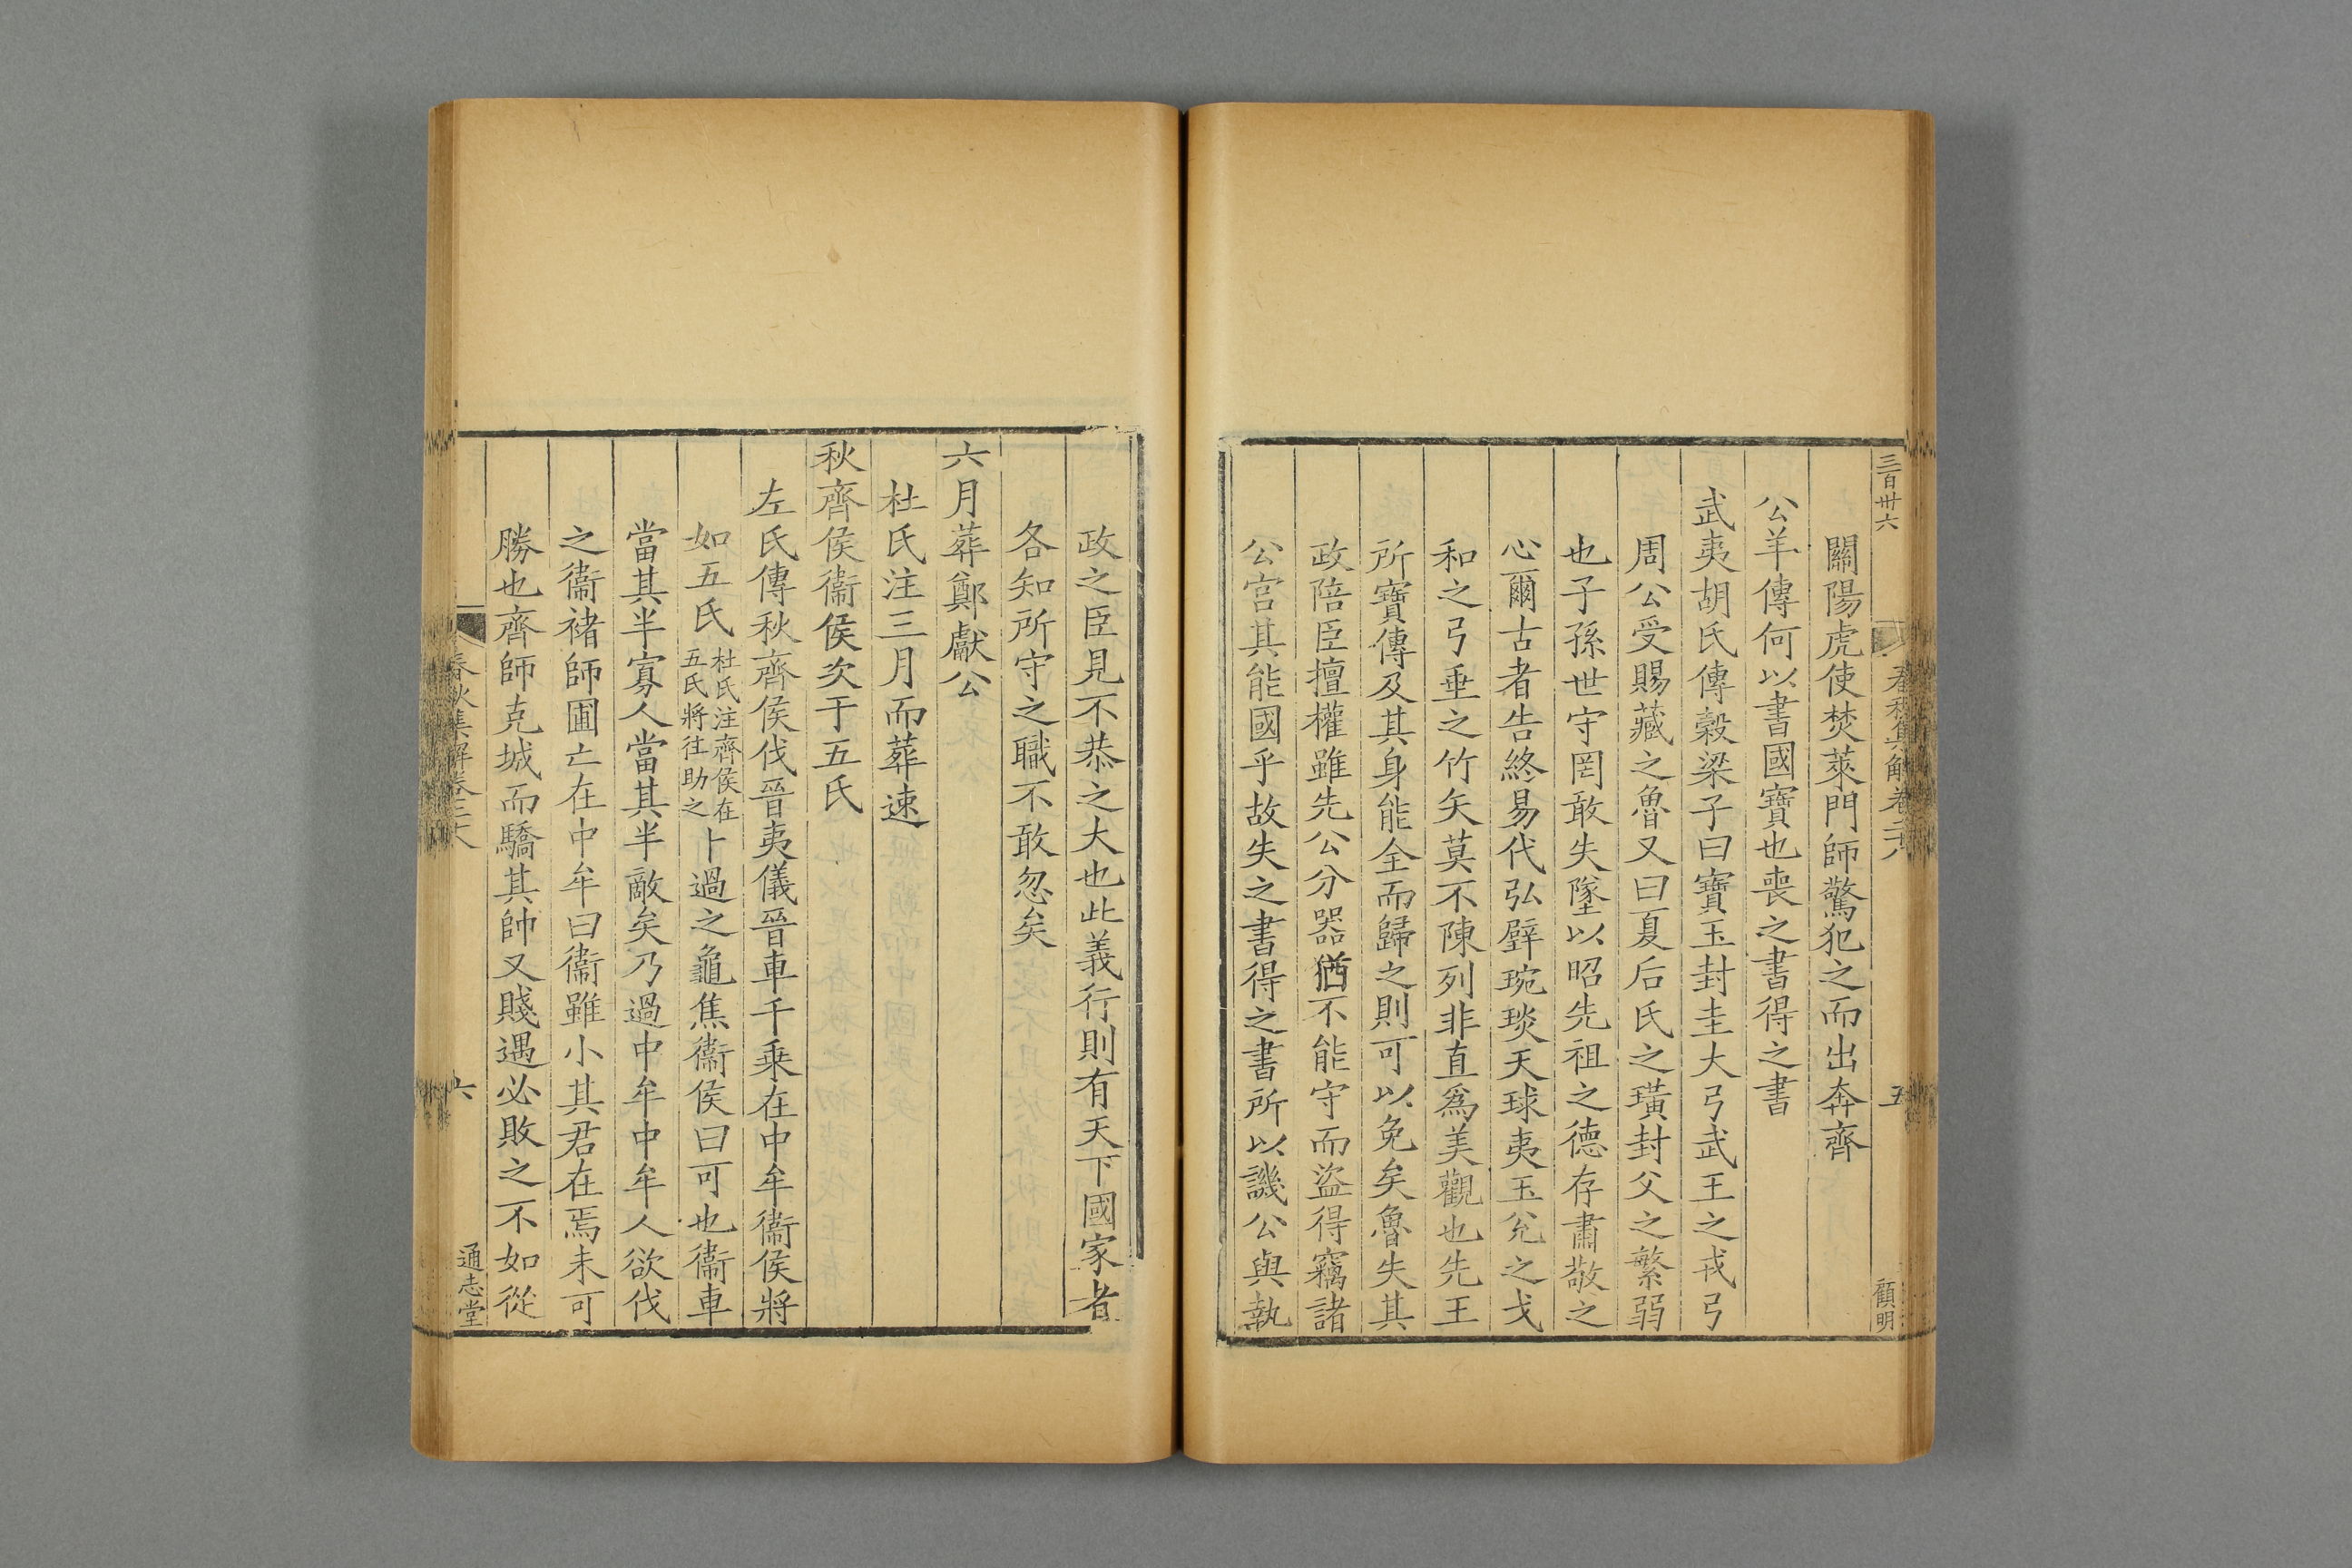 三百卅六
春秋集解卷二十八
五
顧明
關陽虎使焚萊門師驚犯之而出奔齊
公羊傳何以書國寶也喪之書得之書
武夷胡氏傳糓梁子曰寶玉封圭大弓武王之戎弓
周公受賜藏之魯又曰夏后氏之璜封父之繁弱
也子孫世守罔敢失墜以昭先祖之德存肅敬之
心爾古者告終易代弘璧琬琰天球夷玉兊之戈
和之弓垂之竹矢莫不陳列非直爲美觀也先王
所寶傳及其身能全而歸之則可以免矣魯失其
政陪臣擅權雖先公分器猶不能守而盜得竊諸
公宮其能國乎故失之書得之書所以譏公與執
政之臣見不恭之大也此義行則有天下國家者
各知所守之職不敢忽矣
六月葬鄭獻公
杜氏注三月而葬速
秋齊侯衞侯次于五氏
左氏傳秋齊侯伐晉夷儀晉車千乗在中牟衞侯將
如五氏杜氏注齊侯在五氏將往助之卜過之龜焦衞侯曰可也衞車
當其半寡人當其半敵矣乃過中牟中牟人欲伐
之衞褚師圃亡在中牟曰衞雖小其君在焉未可
勝也齊師克城而驕其帥又賤遇必敗之不如從
春秋集解卷二十八
六
通志堂